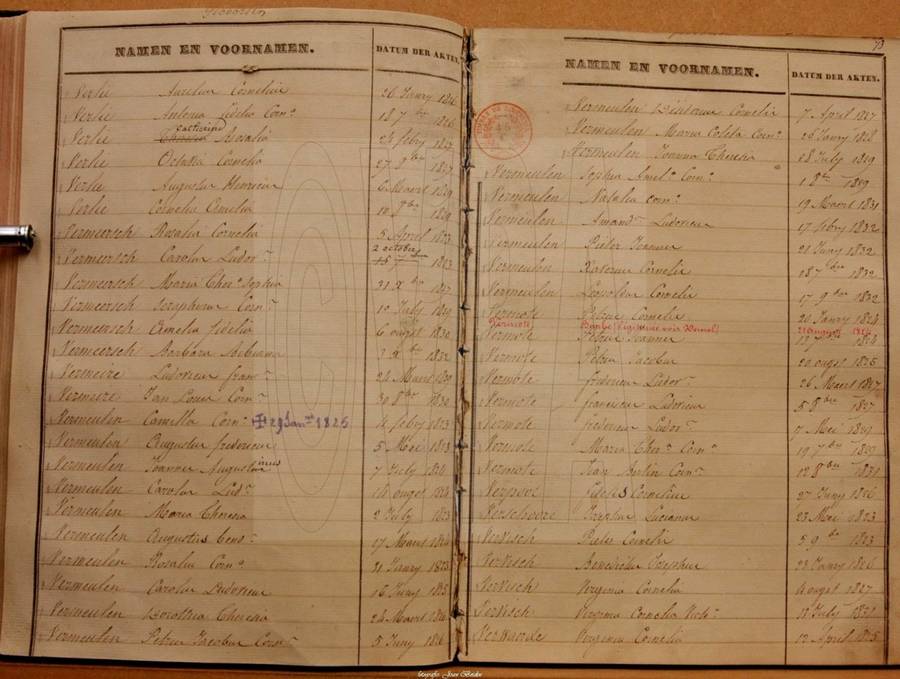 Geboorten
NAMEN EN VOORNAMEN. DATUM DER AKTEN.
Verlie Aurelia Cornelia 26 Janry 1826
Verlie Antonia Lidia Corn.a 18 7bre 1826
Verlie Catherine Rosalia 24 febry
Verlie Octavia Cornelia 27 9bre 1827
Verlie Augusta Henrica 6 Maert 1829
Verlie Cornelia Amelia 10 8bre 1829
Vermeersch Rosalia Cornelia 5 April 1823
Vermeersch Carolus Ludov. 2 october 1823
Vermeersch Maria Ther. Sophia 21 Xbre 1827
Vermeersch Seraphinus Corn. 10 July 1829
Vermeersch Amelia Fidelia 6 ougst 1830
Vermeersch Barbara 3 Xbre 1832
Vermeire Ludovicus fran. 24 Maert 1830
Vermeire Jan Louis Corn. 30 8bre 1830
Vermeulen Camilla Corn. 29 Jan. 1825 4 febry 1823
Vermeulen Augustus fredericus 5 Mei 1823
Vermeulen Joannes Augustinus 7 July 1824
Vermeulen Carolus Lud. 14 ougst 1824
Vermeulen Maria Theresia 2 July 1823
Vermeulen Augustus 17 Maert 1824
Vermeulen Rosalia Corn.a 21 Janry 1825
Vermeulen Carolus Ludovicus 16 Juny 1825
Vermeulen Dorothea Theresia 24 Maert 1826
Vermeulen Petrus Jacobus Corn. 5 Juny 1826
NAMEN EN VOORNAMEN. DATUM DER AKTEN.
Vermeulen Victorina Cornelia 7 April 1827
Vermeulen Maria Coleta Corn. 26 Janry 1828
Vermeulen Joanna Theresia 28 July 1829
Vermeulen Sophia Amel. Corn. 1 8bre 1829
Vermeulen Natalia Corn. 19 Maert 1831
Vermeulen Amand. Ludovicus 17 febry 1832
Vermeulen Pieter Joannes 21 Juny 1832
Vermeulen Cornelis 18 7bre 1832
Vermeulen Leopoldus Cornelis 17 9bre 1832
Vermote Petrus Cornelis 20 Janry 1824
Vermote 21 August 1824
Vermote Petrus Joannes 1824
Vermote Petrus Jacobus 20 ougst 1825
Vermote fredericus Ludov. 26 Maert 1827
Vermote franciscus Ludovicus 5 8bre 1827
Vermote fredericus Ludov. 7 Mei 1829
Vermote Maria Ther. Corn. 19 7bre 1829
Vermote Jan Bertin Corn. 12 8bre 1831
Verpoor Cornelius 27 Juny 1826
Verschoore Lucianus 23 Mei 1823
Vervisch Pieter Cornelis 5 9bre 1823
Vervisch Benedictus Josephus 23 Janry 1826
Vervisch Virginia Cornelia ougst 1827
Vervisch Virginia Cornelia Vict. 13 July 1831
Verwaerde Virginia Cornelia 12 April 1825